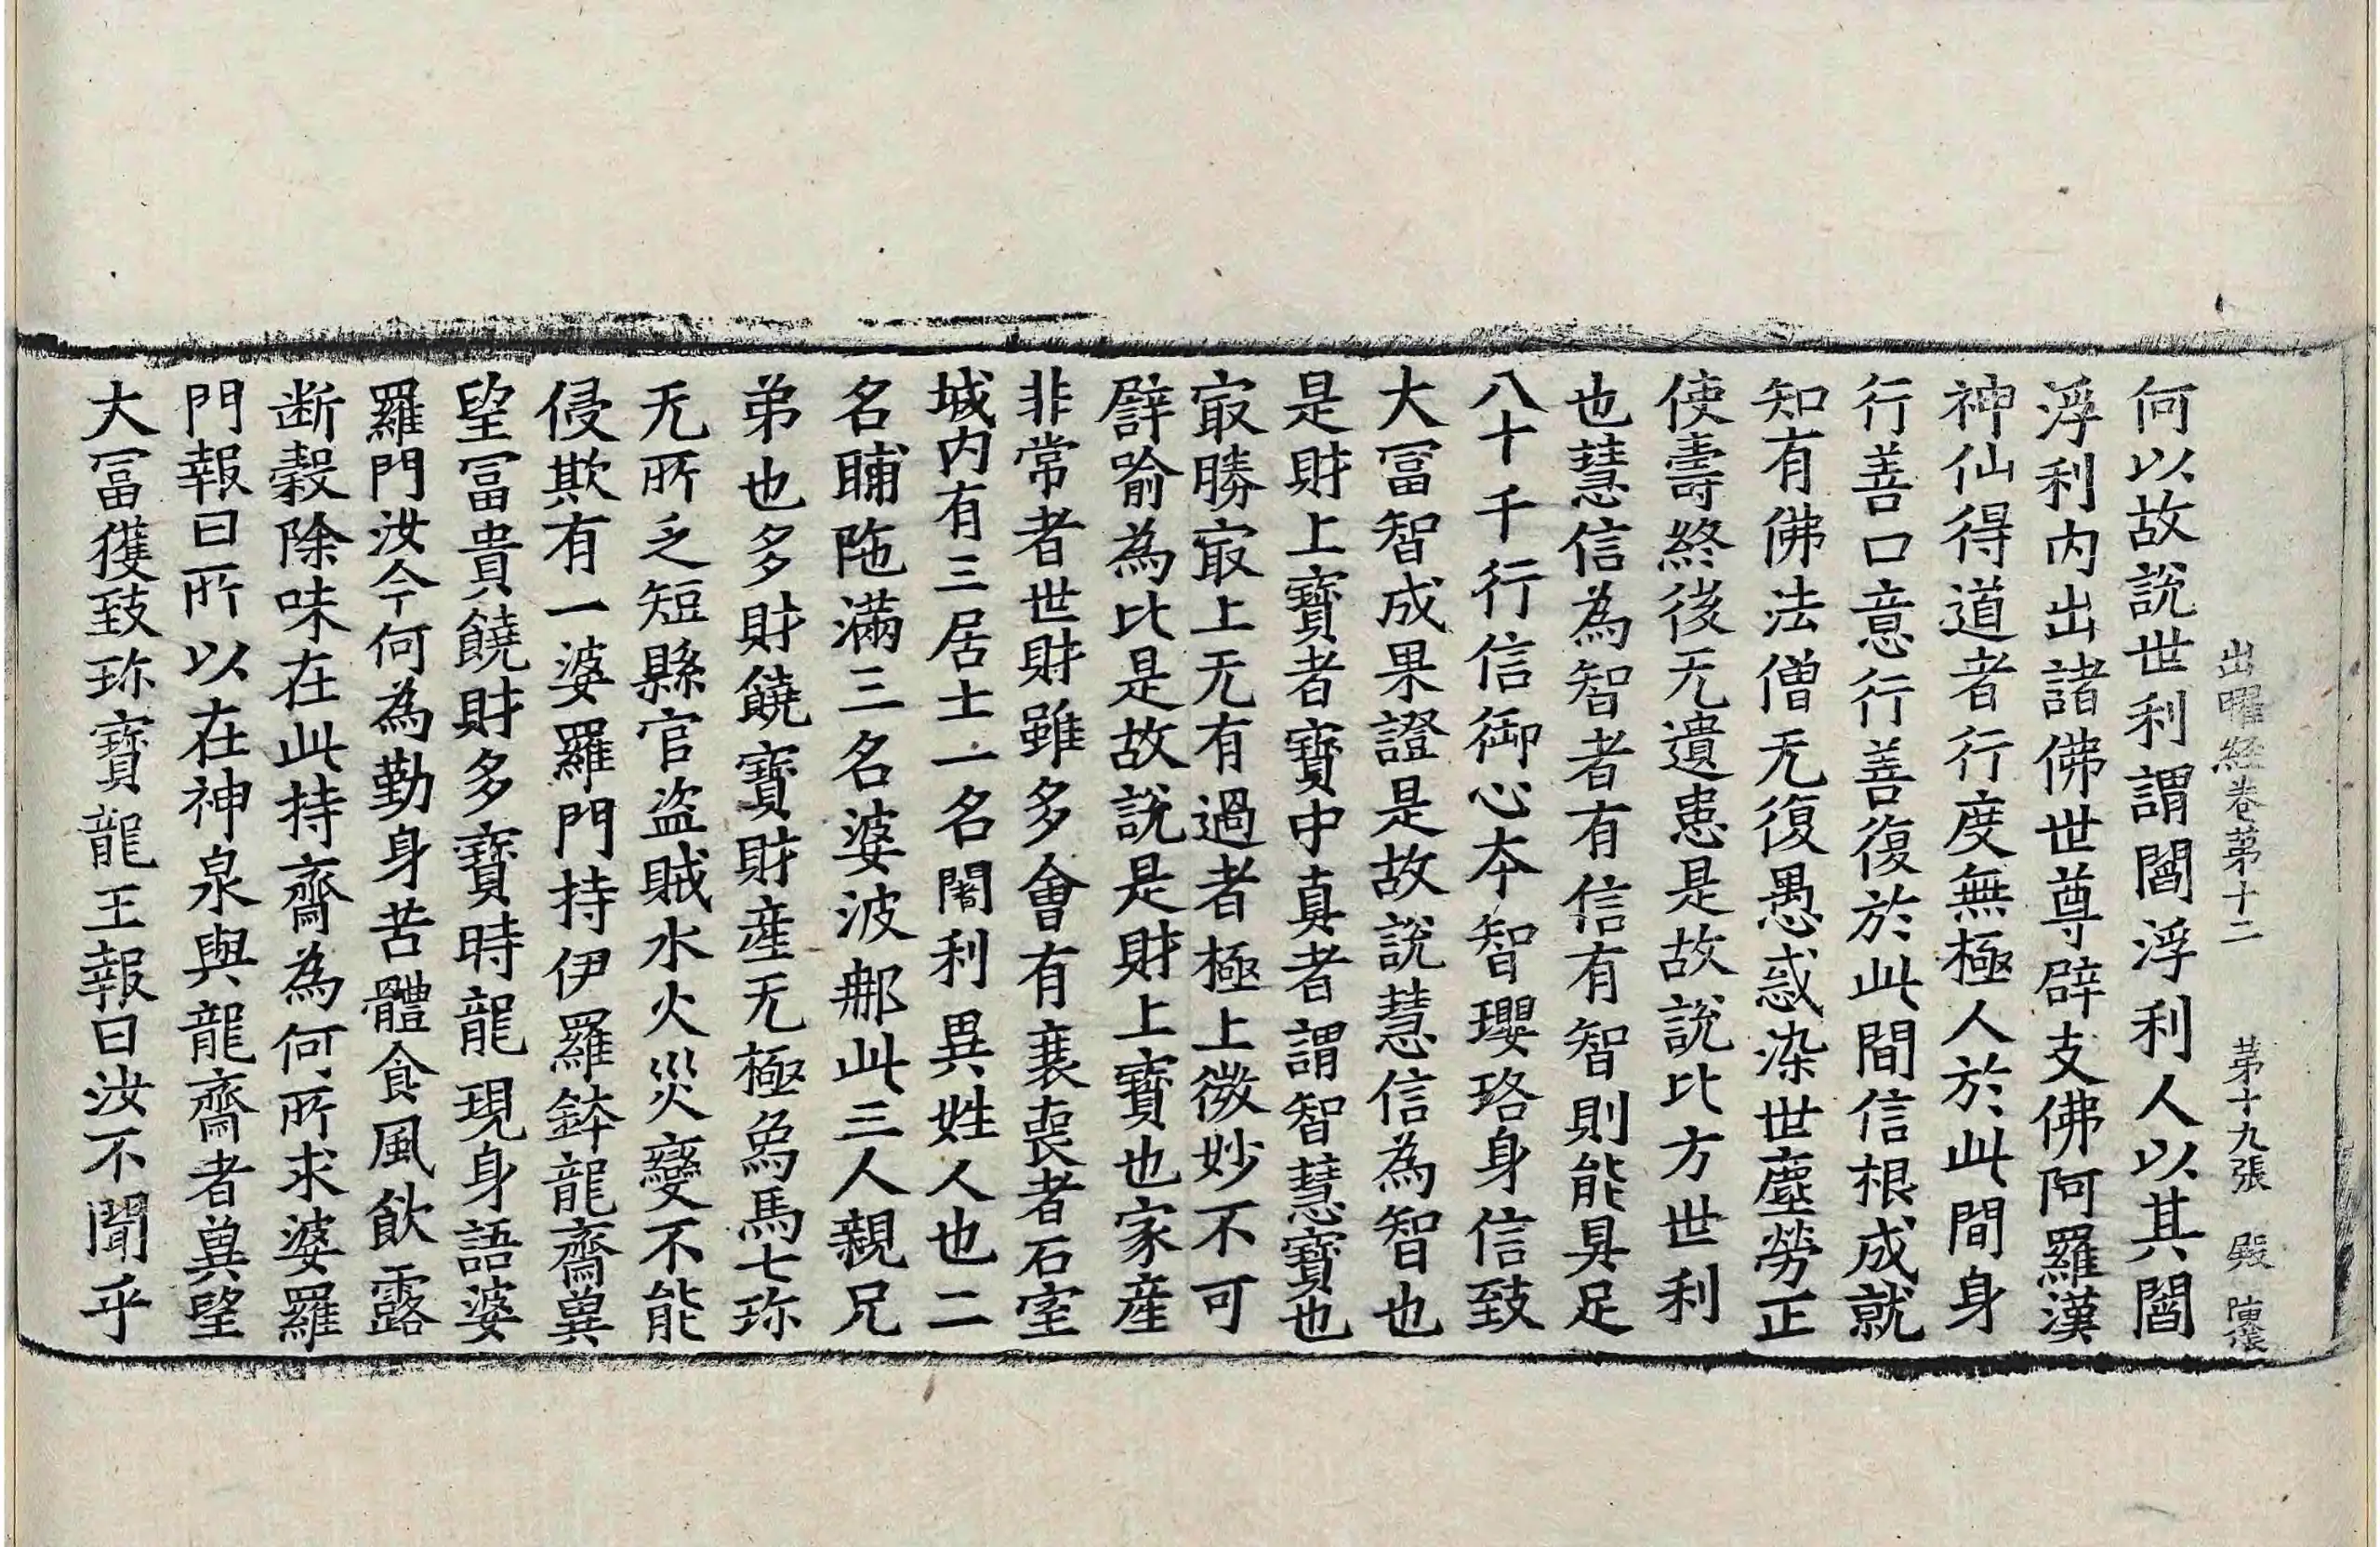 出曜経巻第十二 第十九張 殿
何以故說世利謂閻浮利人以其閻
浮利内出諸佛世尊辟支佛阿羅漢
神仙得道者行度無極人於此間身
行善口意行善復於此間信根成就
知有佛法僧无復愚惑染世塵勞正
使壽終後无遺患是故說比方世利
也慧信為智者有信有智則能具足
八十千行信御心本智瓔珞身信致
大冨智成果證是故說慧信為智也
是財上寶者寶中真者謂智慧寶也
㝡勝㝡上无有過者極上微妙不可
譬喻為比是故說是財上寶也家産
非常者世財雖多會有衰喪者石室
城内有三居士一名闍利異姓人也二
名晡陁滿三名婆波郍此三人親兄
弟也多財饒寶財産无極象馬七珎
无所乏短縣官盜賊水火災變不能
侵欺有一婆羅門持伊羅鉢龍齋兾
望冨貴饒財多寶時龍現身語婆
羅門汝今何為勤身苦體食風飲露
断穀除味在此持齋為何所求婆羅
門報曰所以在神泉與龍齋者兾望
大冨獲致珎寶龍王報曰汝不聞乎